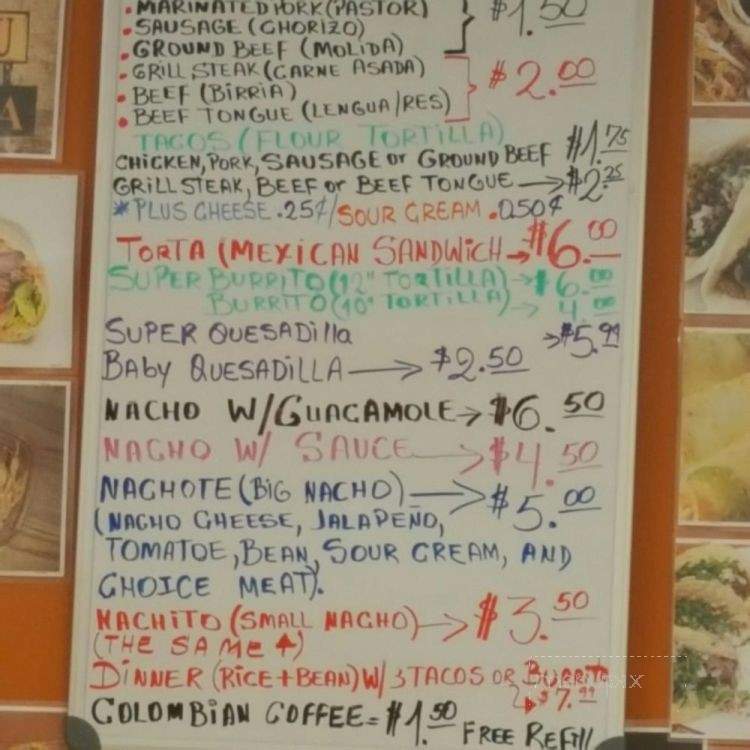 • MARINATED PORK (PASTOR) $1.50
• SAUSAGE (CHORIZO)
• GROUND BEEF (MOLIDA)
• GRILL STEAK (CARNE ASADA) $2.00
• BEEF (BIRRIA)
• BEEF TONGUE (LENGUA/RES)
TACOS (FLOUR TORTILLA)
CHICKEN, PORK, SAUSAGE or GROUND BEEF $1.75
GRILL STEAK, BEEF or BEEF TONGUE → $2.25
* PLUS CHEESE .25¢ / SOUR CREAM .050¢
TORTA (MEXICAN SANDWICH → $6.00
SUPER BURRITO (12" TORTILLA) → $6.00
BURRITO (10" TORTILLA) → 4.00
SUPER QUESADILLA → $5.99
BABY QUESADILLA → $2.50
NACHO W/GUACAMOLE → $6.50
NACHO W/ SAUCE → $4.50
NACHOTE (BIG NACHO) → $5.00
(NACHO CHEESE, JALAPEÑO,
TOMATOE, BEAN, SOUR CREAM, AND
CHOICE MEAT).
NACHITO (SMALL NACHO) → $3.50
(THE SAME ↑)
DINNER (RICE + BEAN) W/ 3 TACOS OR BURRITO
$7.99
COLOMBIAN COFFEE = $1.50 FREE REFILL